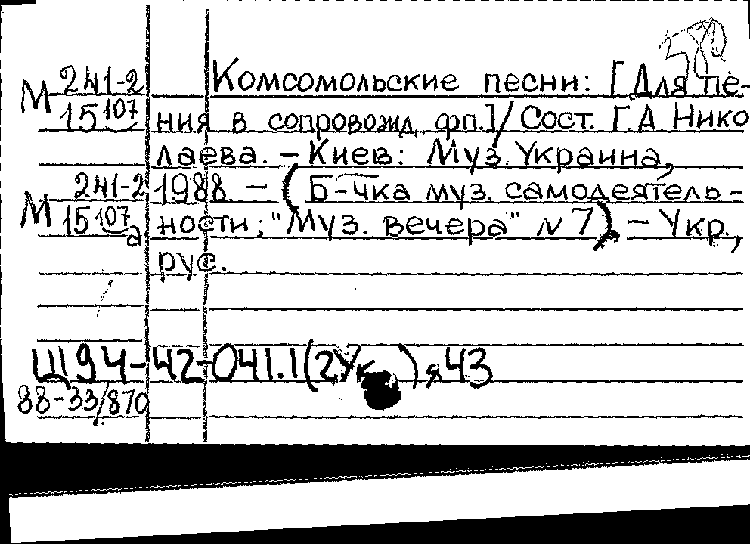 580
М 241-2 Комсомольские песни: [Для пе-
15 107 ния в сопровожд. фп.] / Сост. Г.А. Нико
лаева. – Киев: Муз. Украина,
241-2 1988. – (Б-чка муз. самодеятель-
М 15 107 а ности; "Муз. вечера" N 7). – Укр.,
рус.
Щ94-42-041.1(2Ук ) я43
88-33/870